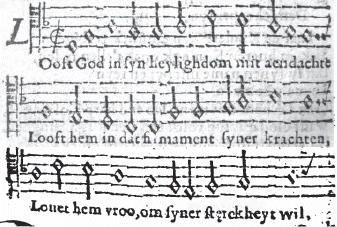 LOost God in syn heylighdom mit aendachte
Looft hem in dat firmament syner krachten,
Louet hem vroo, om syner sterckheyt wil,